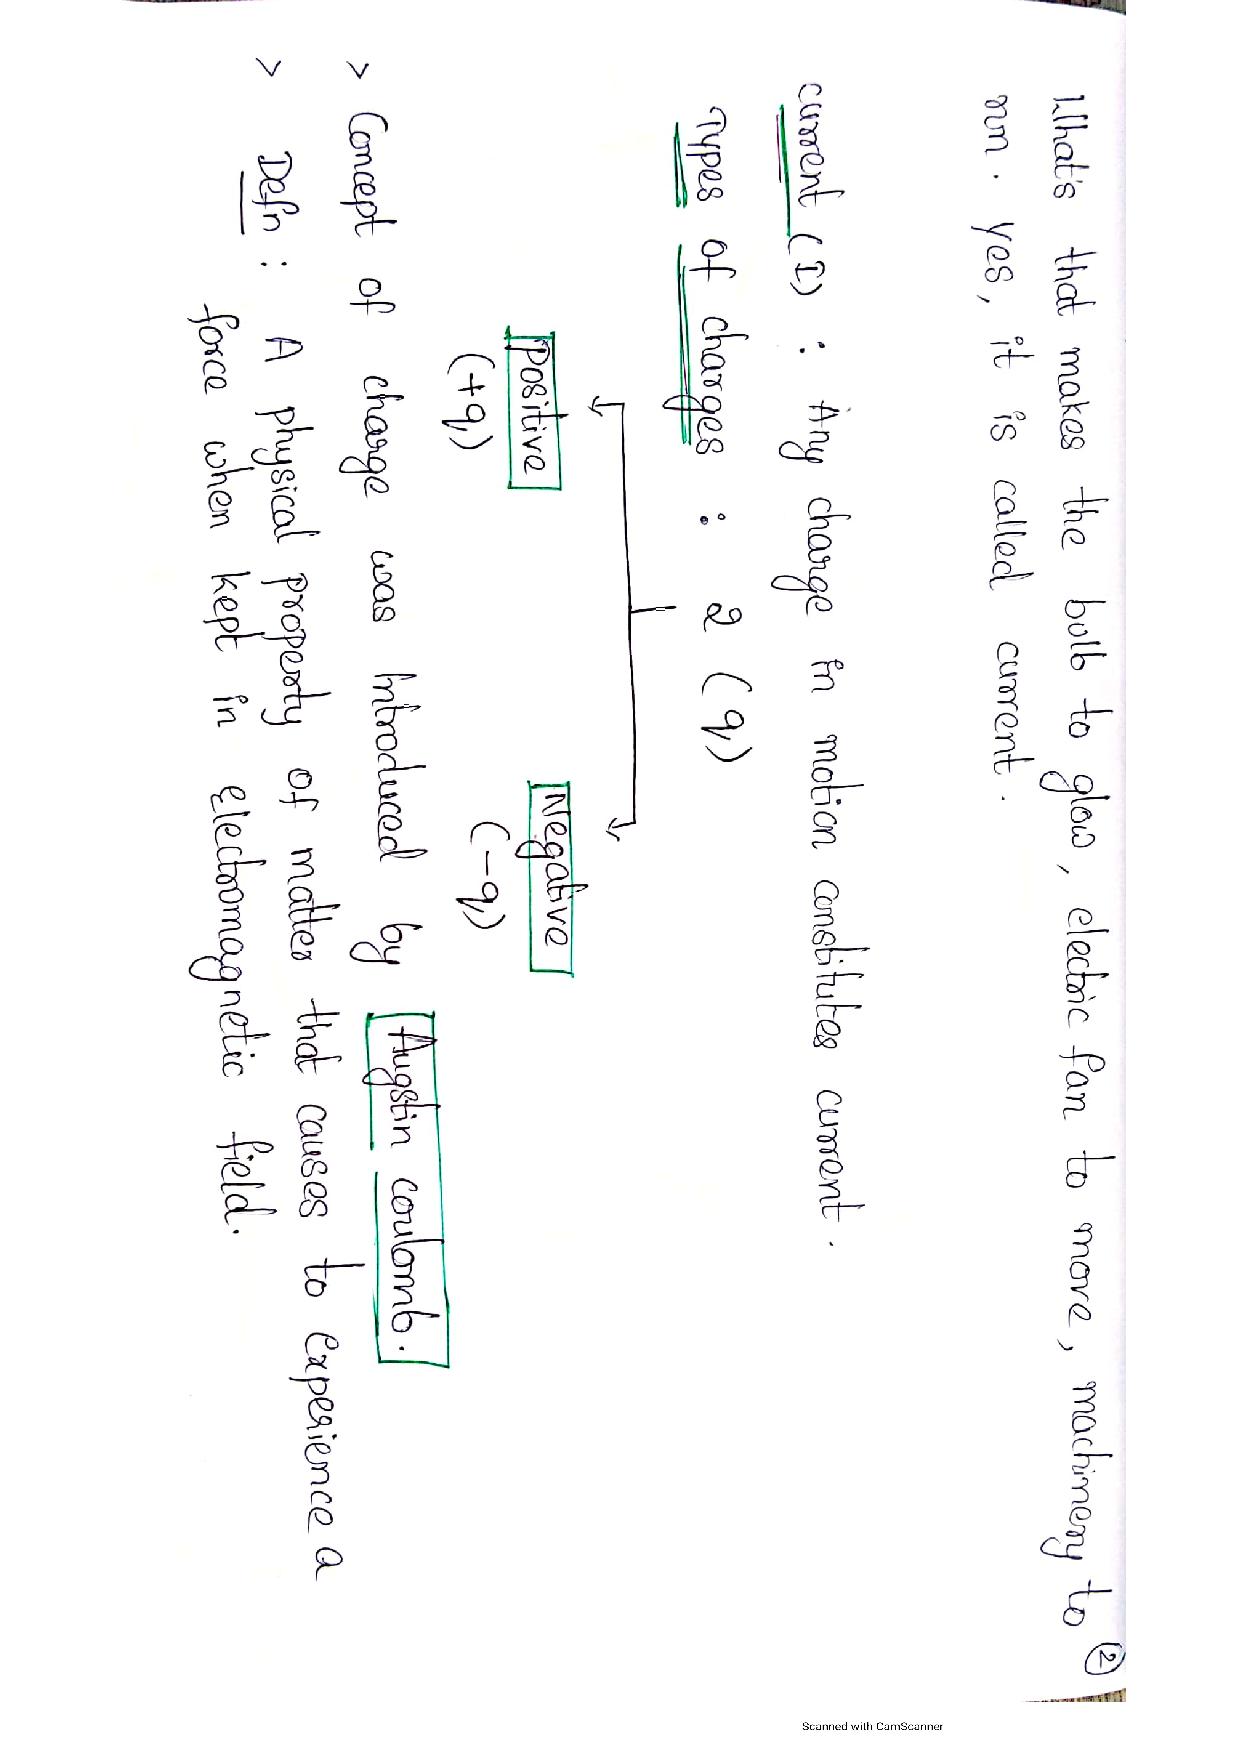 What's that makes the bulb to glow, electric fan to move, machinery to
run. yes, it is called current.
②
current (I) : Any charge in motion constitutes current.
Types of charges : 2 (q)
Positive Negative
(+q) (-q)
> Concept of charge was Introduced by Augstin coulomb.
> Defn : A physical property of matter that causes to experience a
force when kept in electromagnetic field.
Scanned with CamScanner